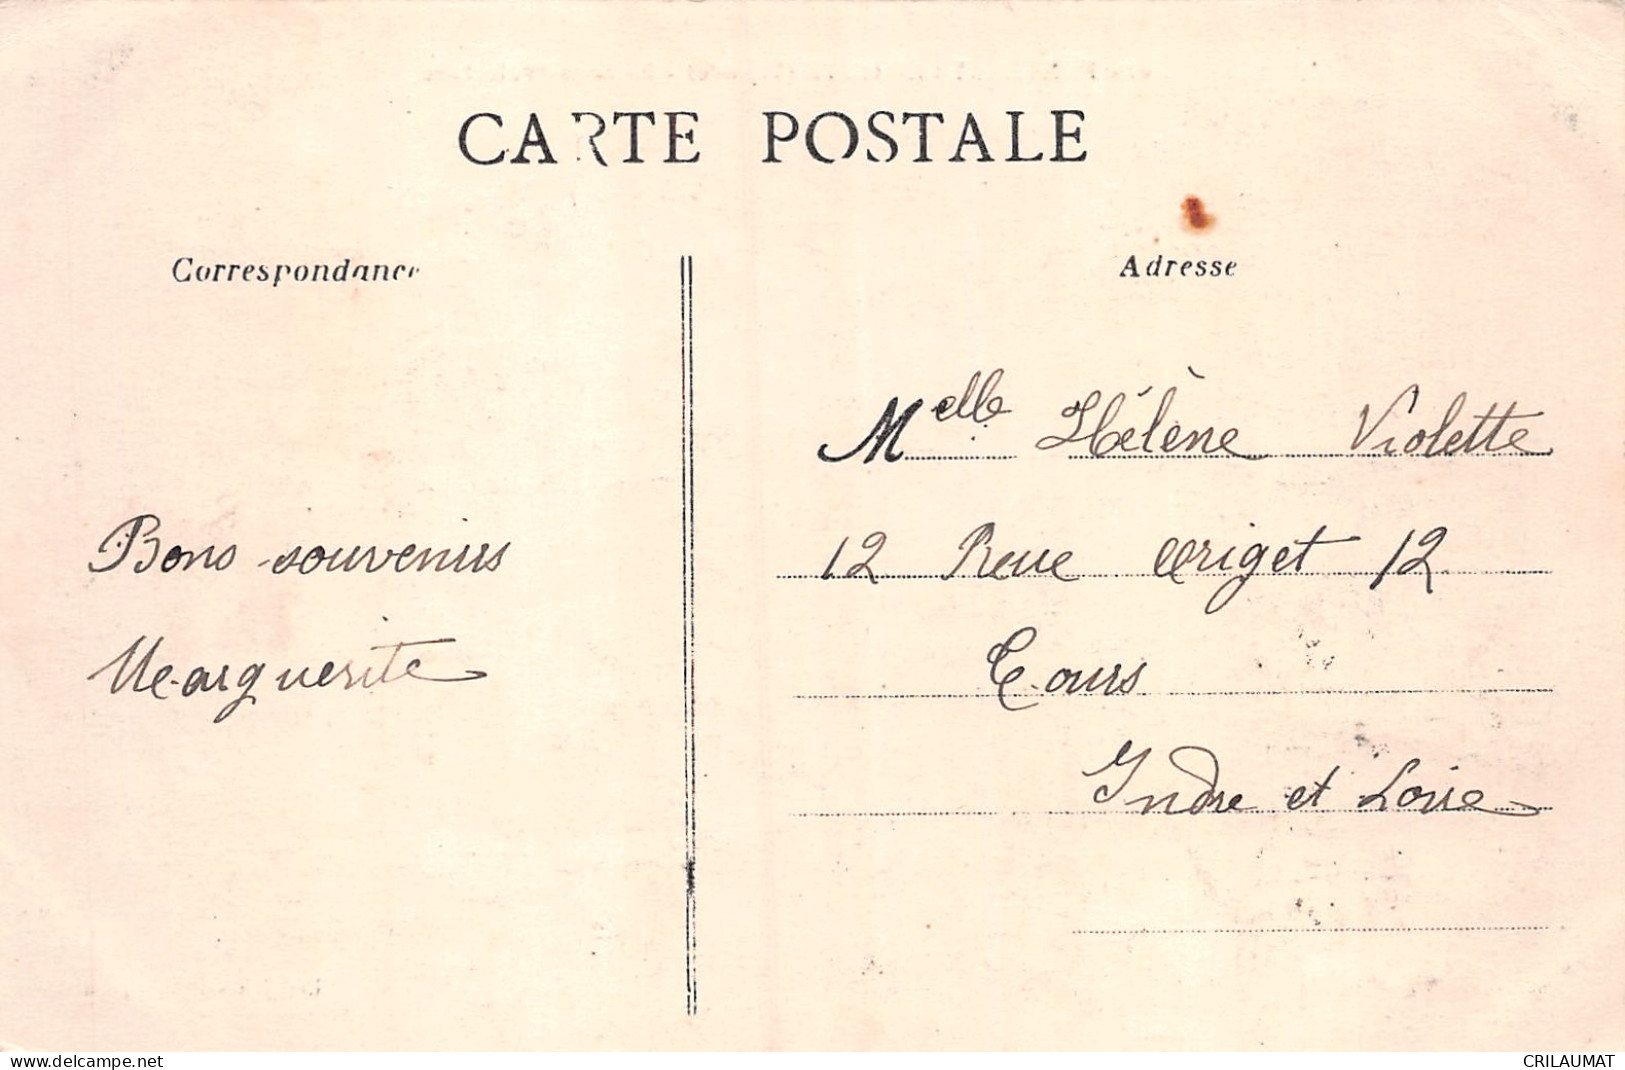 CARTE POSTALE
Correspondance
Adresse
Melle Hélène Violette
12 Rue Origet 12
Tours
Indre et Loire
Bons souvenirs
Marguerite
www.delcampe.net
CRILAUMAT